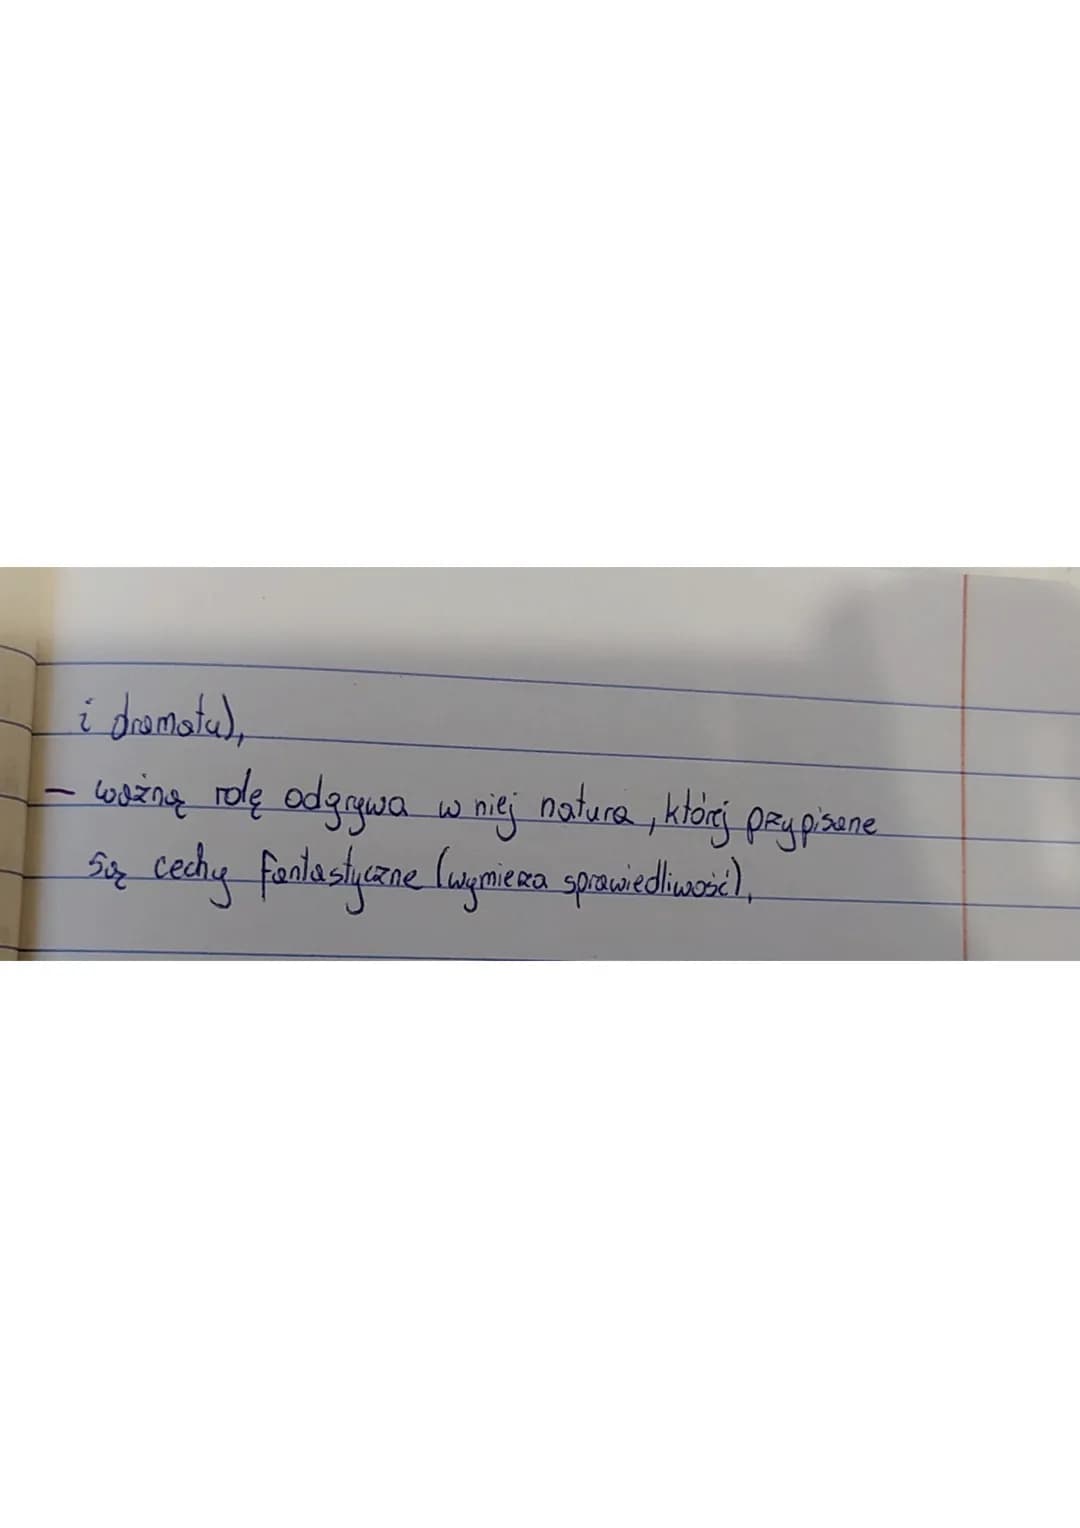 i dramatu),
- ważną rolę odgrywa w niej natura, której przypisane
są cechy fantastyczne (wymierza sprawiedliwość),